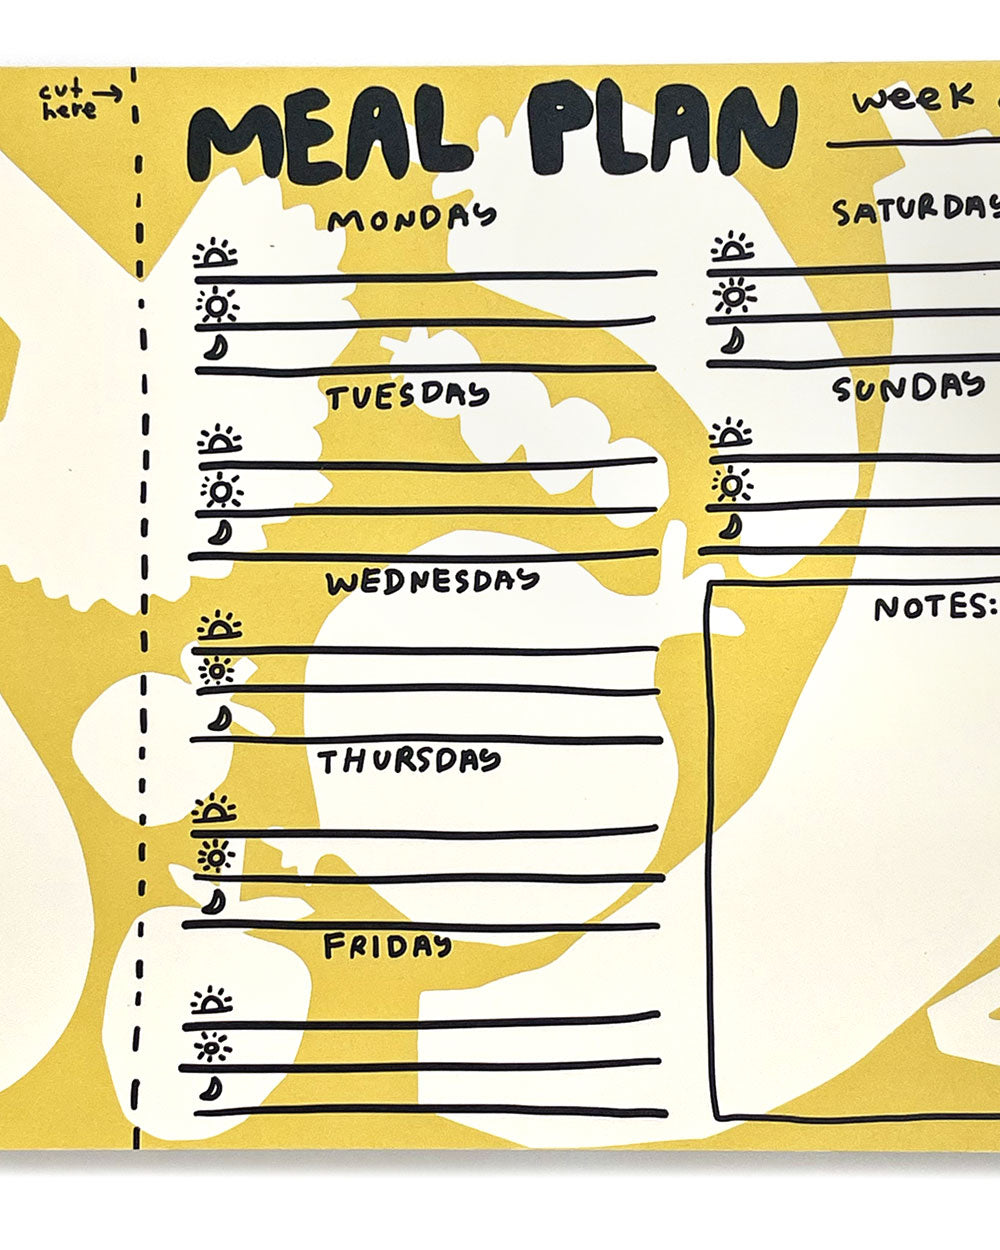 cut
here
MEAL PLAN
week
MONDAY
TUESDAY
WEDNESDAY
THURSDAY
FRIDAY
SATURDAY
SUNDAY
NOTES: